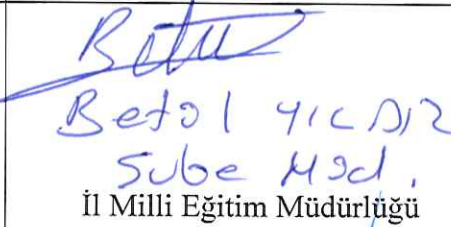 Betül YILDIZ
Şube Müd.
İl Milli Eğitim Müdürlüğü